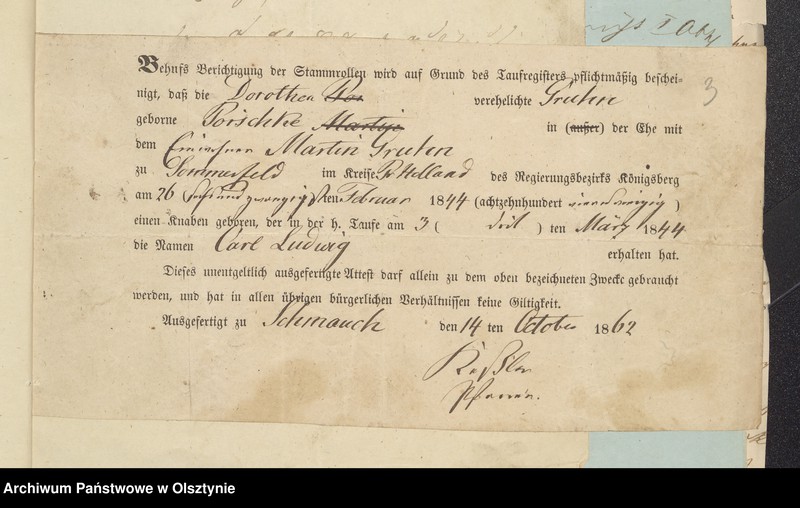 3
Behufs Berichtigung der Stammrollen wird auf Grund des Taufregisters pflichtmäßig beschei-
nigt, daß die Dorothea verehelichte Gruhn
geborne Porschke in (außer) der Ehe mit
dem Martin Gruhn
zu Sommerfeld im Kreise Pr Holland des Regierungsbezirks Königsberg
am 26 (sechsundzwanzig)sten Februar 1844 (achtzehnhundert vierundvierzig)
einen Knaben geboren, der in der h. Taufe am 3 (drit) ten März 1844
die Namen Carl Ludwig erhalten hat.
Dieses unentgeltlich ausgefertigte Attest darf allein zu dem oben bezeichneten Zwecke gebraucht
werden, und hat in allen übrigen bürgerlichen Verhältnissen keine Giltigkeit.
Ausgefertigt zu Schmauch den 14 ten October 1862
Keßler
Pfarrer.
Archiwum Państwowe w Olsztynie